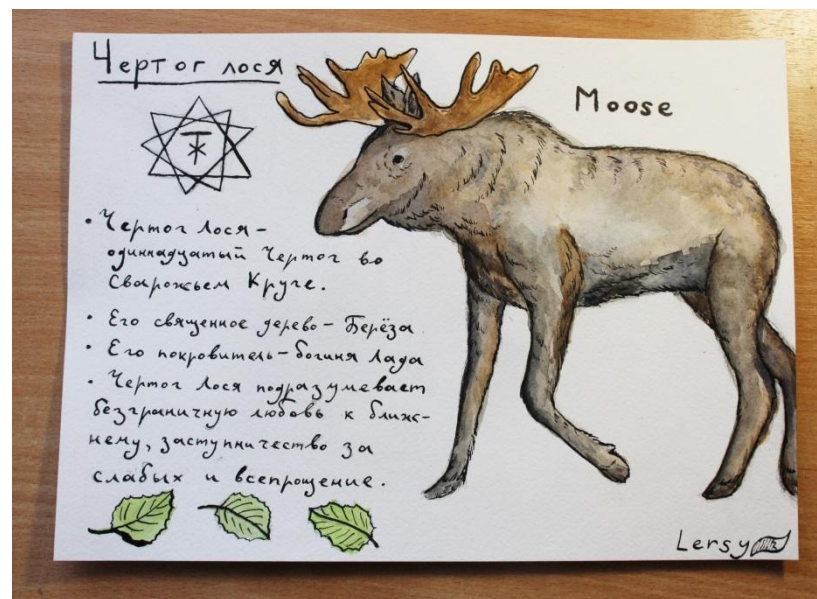 Чертог лося
Moose
• Чертог Лося –
одиннадцатый Чертог во
Сварожьем Круге.
• Его священное дерево – Берёза
• Его покровитель – богиня Лада
• Чертог Лося подразумевает
безграничную любовь к ближ-
нему, заступничество за
слабых и всепрощение.
Lersy